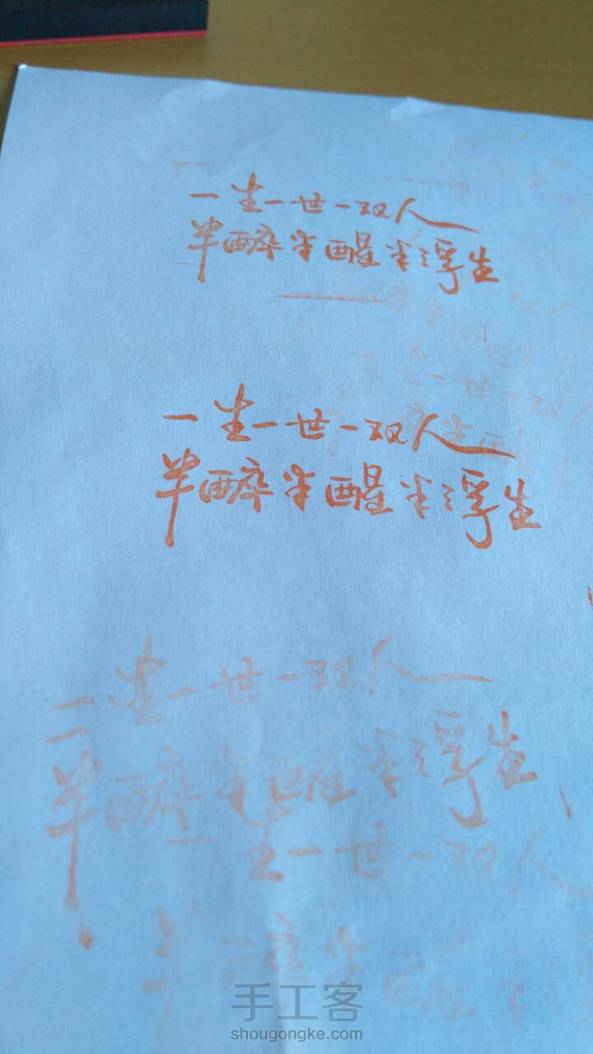 一生一世一双人
半醉半醒半浮生
一生一世一双人
半醉半醒半浮生
一生一世一双人
半醉半醒半浮生
一生一世一双人
手工客
shougongke.com